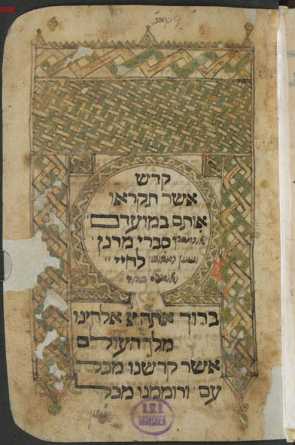 קדש
אשר תקראו
אותם במועדם
סברי מרנן
לחיי
ברוך אתה יי אלהינו
מלך העולם
אשר קדשנו מכל
עם ורוממנו מכל